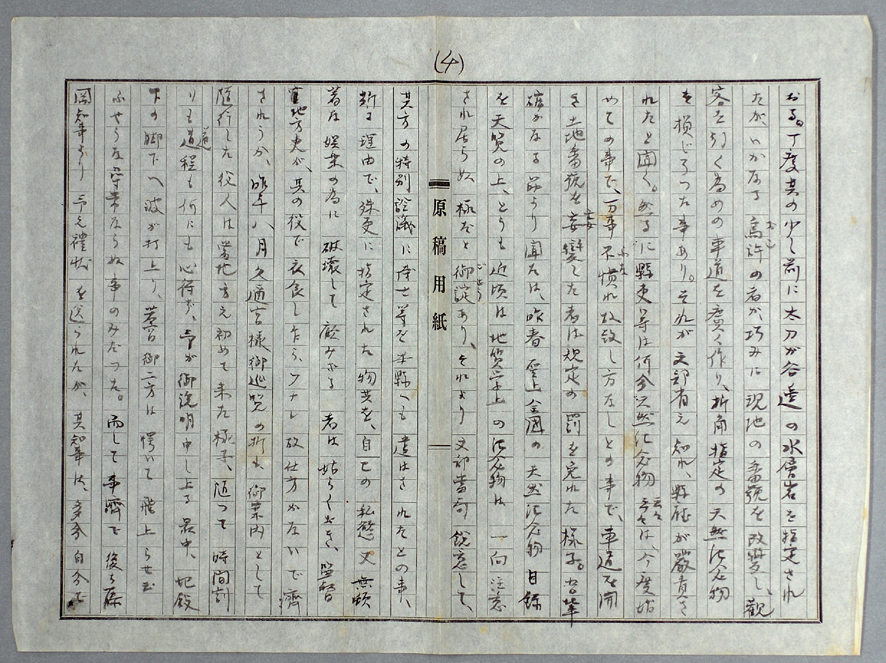 (4)
なる。丁度其の少し前に太刀が谷邊の水層岩を指定され
たが、いかなる烏許の者か、巧みに現地の番號を改變し、觀
客を引く為めの車道を廣く作り、折角指定の天然記念物
を損じ了つた事あり。それが文部省え知れ、縣廳が嚴責さ
れたと聞く。然るに縣吏等は何分天然記念物云々は今度始
めての事で、万事不慣れ故致し方なしとの事で、車道を開
き土地番號を妄變した者は規定の罰を免れた様子。
確かなる筋より聞たは、昨春 聖上全國の天然記念物目録
を天覧の上、どうも近頃は地質學上の記念物は一向注意
され居らぬ様だと御諚あり、それより文部當局鋭意して、
原稿用紙
其方の特別詮議に 等を本縣へも遣はされたとの事、
斯る理由で、殊更に指定された物共を、自己の私慾又無頓
着な娯楽の為に破壊して顧みざる者は姑らくおき、監督
官地方吏が、其の役で衣食し乍ら、ワナレ故仕方がないで濟
されうか、昨年八月久邇宮様御巡覧の折も、御案内として
隨行した役人は當地方え初めて来た様子、随つて時間割
りも道程も何にも心得ず、予が御説明申し上る最中、妃殿
下の御脚下へ波が打上り、 御二方は驚いて飛上らせ玉
ふやうな ならぬ事のみだつた。而して事濟で後ち
岡知事より予え禮状を送られたが、其知事は、 自分で